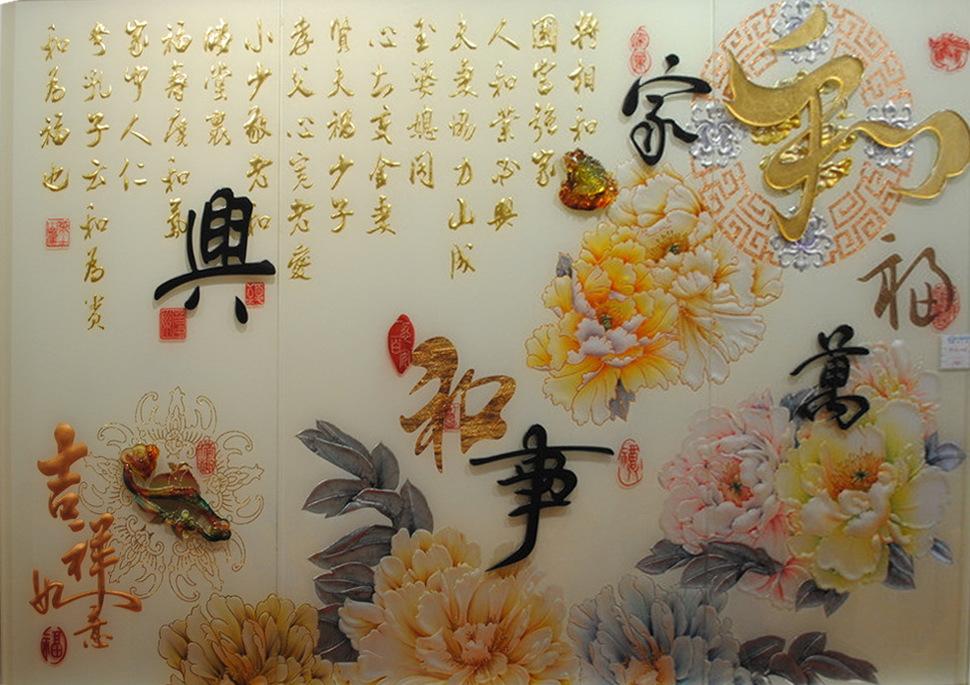 将相和
國富強家
人和業必興
夫妻協力山成
玉婆媳同
心土变金妻
賢夫禍少子
孝父心宽老愛
小少敬老和
滿堂裏
福壽康和氣
家中人仁
兮孔子云和為贵
和為福也
和
福
家
和
萬
事
興
吉祥
如意